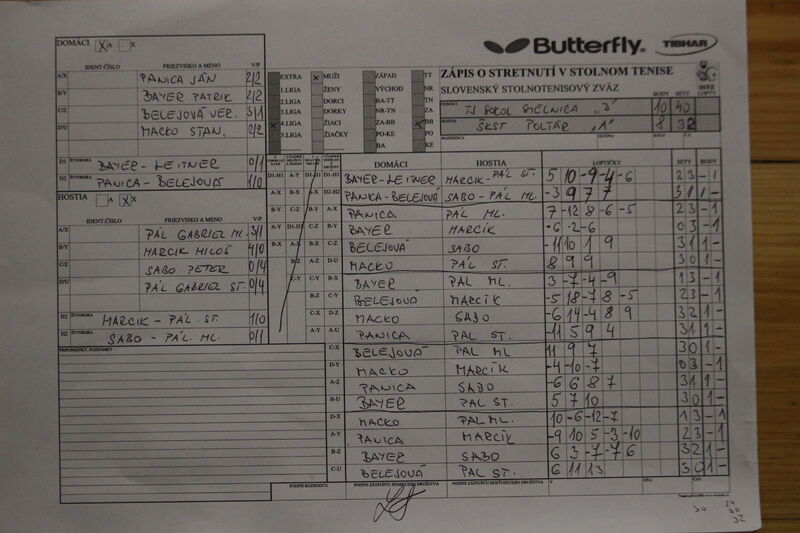 Butterfly TIBHAR
DOMÁCI X A X
IDENT.ČÍSLO PRIEZVISKO A MENO V/P
A/X PANICA JÁN 2/2
B/Y BAYER PATRIK 2/2
C/Z BELEJOVÁ VER. 3/1
D/U MACKO STAN. 2/2
D1 ŠTVORHRA BAYER - LEITNER 0/1
D2 PANICA - BELEJOVÁ 1/0
HOSTIA A X X
IDENT.ČÍSLO PRIEZVISKO A MENO V/P
A/X PÁL GABRIEL ML. 3/1
B/Y MARCIK MILOŠ 4/0
C/Z SABO PETER 0/4
D/U PÁL GABRIEL ST. 0/4
H1 ŠTVORHRA MARCIK - PÁL. ST. 1/0
H2 ŠTVORHRA SABO - PÁL. ML. 0/1
PRIPOMIENKY, POZNÁMKY
EXTRA X MUŽI ZÁPAD TT
1.LIGA ŽENY VÝCHOD NR
2.LIGA DORCI BA-TT TN
3.LIGA DORKY NR-TN ZA
X 4.LIGA ŽIACI ZA-BB X BB
5.LIGA ŽIAČKY PO-KE PO
BA KE
ZÁPIS O STRETNUTÍ V STOLNOM TENISE
SLOVENSKÝ STOLNOTENISOVÝ ZVÄZ
BODY SETY
DOMÁCI TJ SOKOL SIELNICA "B" 10 40
HOSTIA ŠKST POLTÁR "A" 8 32
ROZHODCA
DOMÁCI HOSTIA LOPTIČKY SETY BODY
D1-H1 BAYER-LEITNER MARCIK-PÁL ST. 5 10 -9 -4 -6 2 3 - 1
D2-H2 PANICA-BELEJOVÁ SABO-PÁL ML. -3 9 7 7 3 1 1 -
A-X PANICA PÁL ML. 7 -12 8 -6 -5 2 3 - 1
B-Y BAYER MARCÍK -6 -2 -6 0 3 - 1
C-Z BELEJOVÁ SABO -11 10 1 9 3 1 1 -
D-U MACKO PÁL ST. 8 9 9 3 0 1 -
B-X BAYER PÁL ML. 3 -7 -4 -9 1 3 - 1
C-Y BELEJOVÁ MARCÍK -5 18 -7 8 -5 2 3 - 1
D-Z MACKO SABO -6 14 -4 8 9 3 2 1 -
A-U PANICA PÁL ST. -11 5 9 4 3 1 1 -
C-X BELEJOVÁ PÁL ML 11 9 7 3 0 1 -
D-Y MACKO MARCÍK -4 -10 -7 0 3 - 1
A-Z PANICA SABO -6 6 8 7 3 1 1 -
B-U BAYER PÁL ST. 5 7 10 3 0 1 -
D-X MACKO PÁL ML. 10 -6 -12 -7 1 3 - 1
A-Y PANICA MARCÍK -9 10 5 -3 -10 2 3 - 1
B-Z BAYER SABO 6 3 -7 -7 6 3 2 1 -
C-U BELEJOVÁ PÁL ST. 6 11 13 3 0 1 -
PODPIS ROZHODCU PODPIS ZÁSTUPCU DOMÁCEHO DRUŽSTVA PODPIS ZÁSTUPCU HOSŤUJÚCEHO DRUŽSTVA V DŇA
32